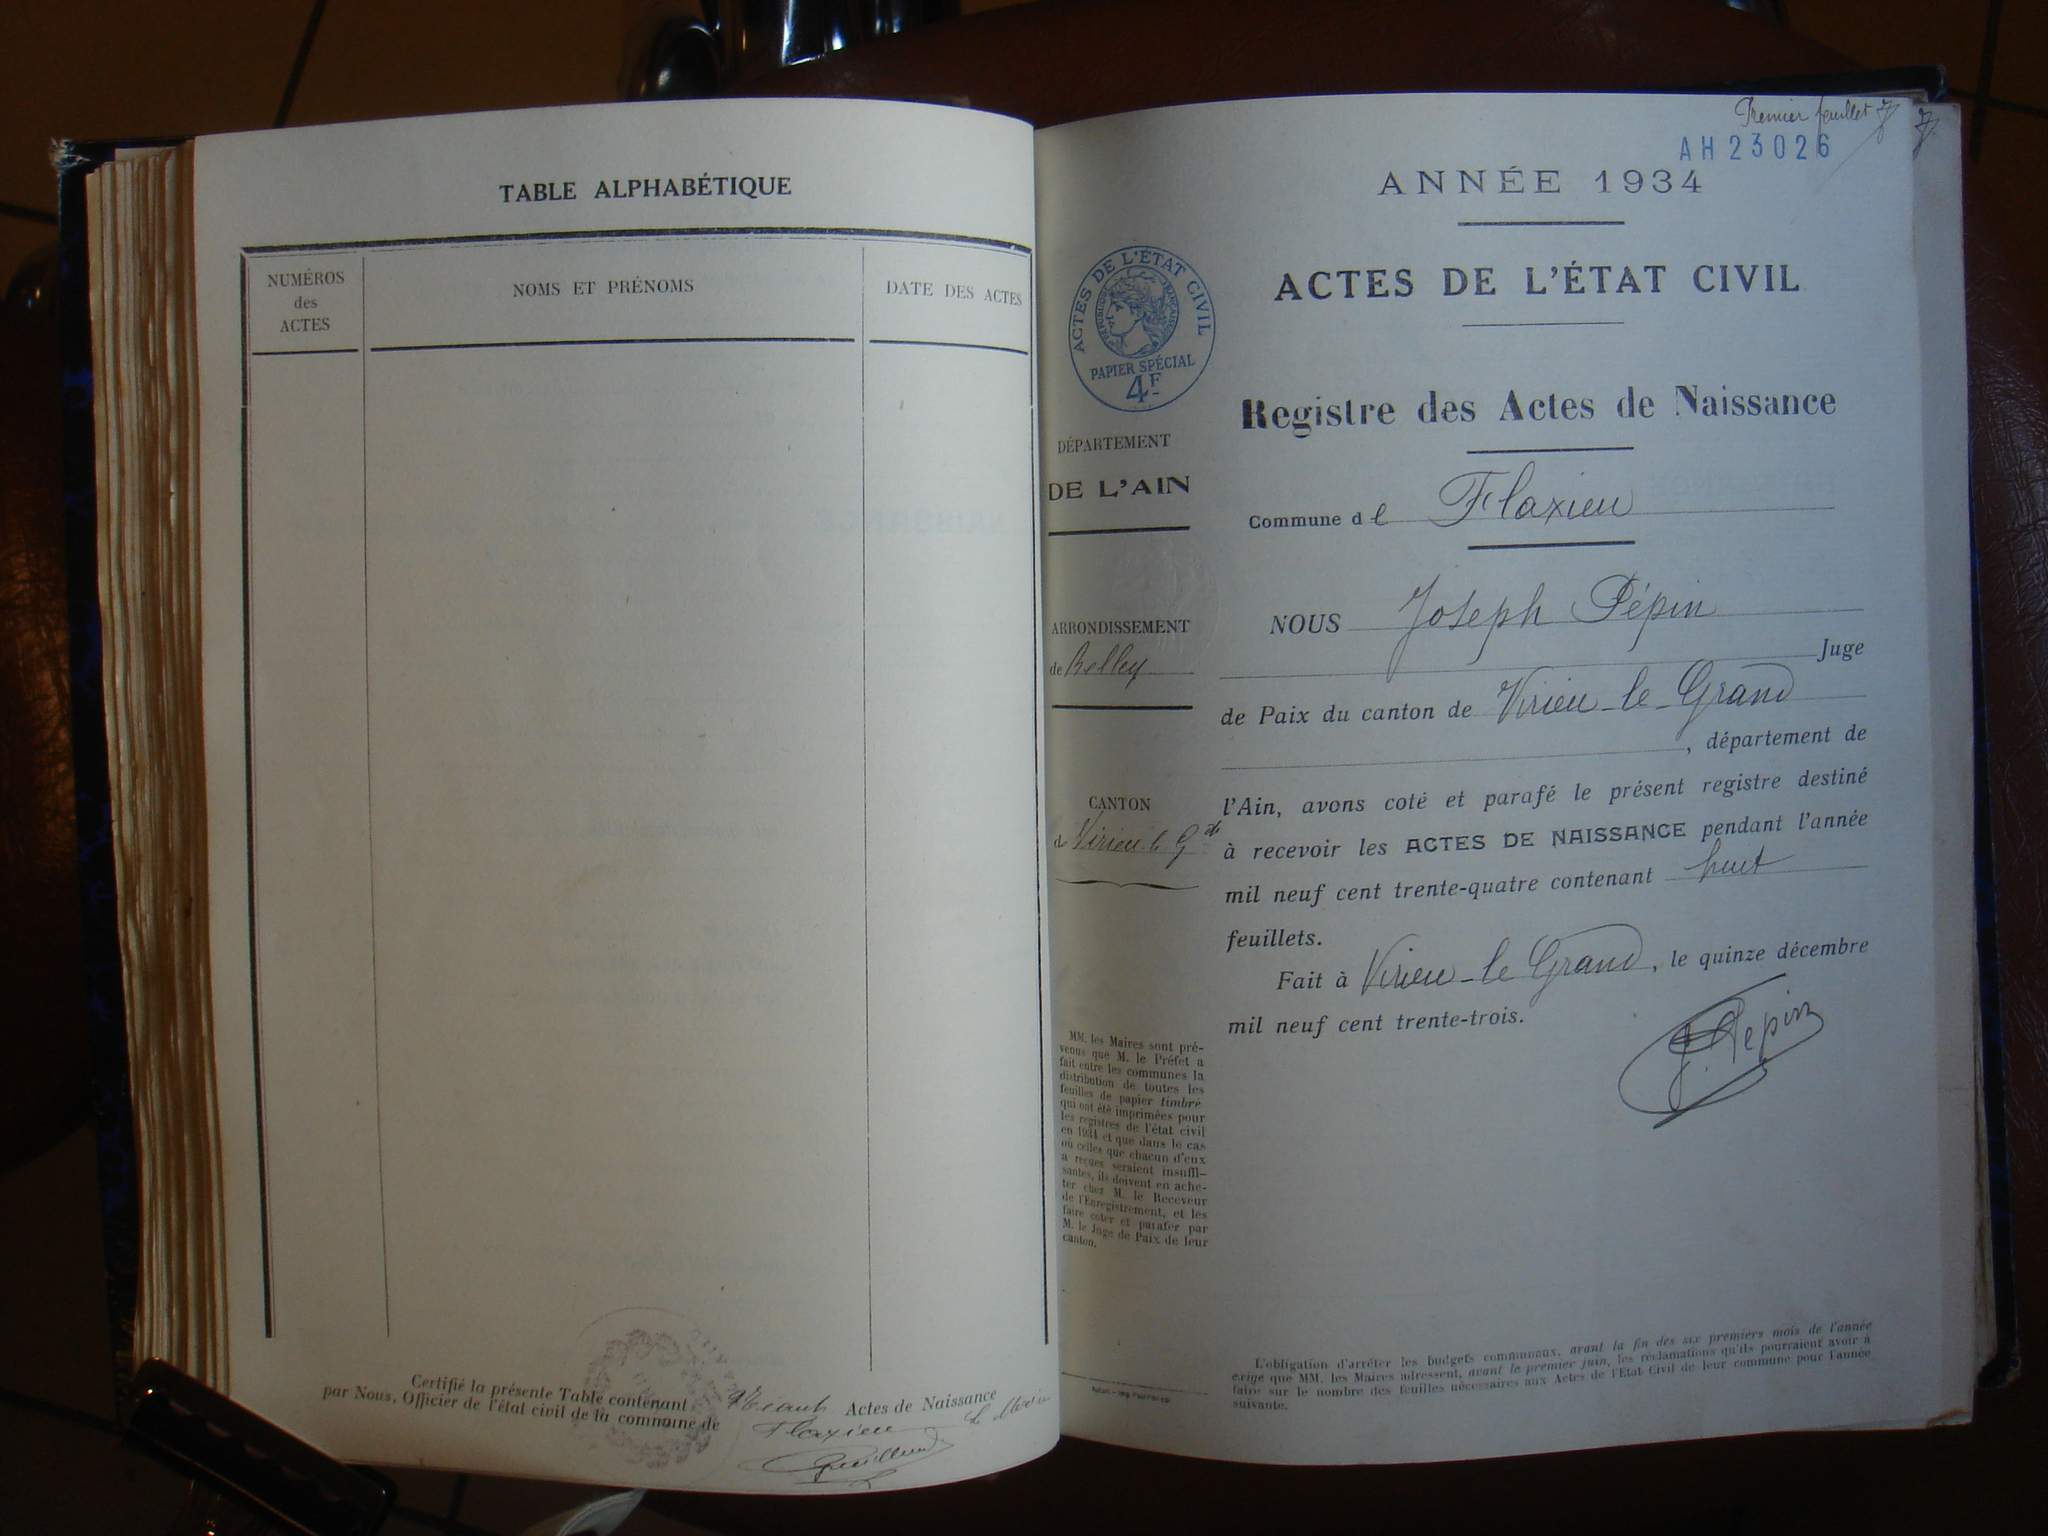 TABLE ALPHABÉTIQUE
NUMÉROS
des
ACTES
NOMS ET PRÉNOMS
DATE DES ACTES
Certifié la présente Table contenant Néant Actes de Naissance
par Nous, Officier de l'état civil de la commune de Flaxieu
Premier feuillet
AH23026
ANNÉE 1934
ACTES DE L'ÉTAT CIVIL
ACTES DE L'ÉTAT CIVIL
RÉPUBLIQUE FRANÇAISE
PAPIER SPÉCIAL
4F
Registre des Actes de Naissance
DÉPARTEMENT
DE L'AIN
Commune de Flaxieu
ARRONDISSEMENT
de Belley
CANTON
d Virieu-le-Gd
NOUS Joseph Pépin
Juge
de Paix du canton de Virieu-le-Grand
, département de
l'Ain, avons coté et parafé le présent registre destiné
à recevoir les ACTES DE NAISSANCE pendant l'année
mil neuf cent trente-quatre contenant huit
feuillets.
Fait à Virieu-le-Grand, le quinze décembre
mil neuf cent trente-trois.
J. Pepin
MM. les Maires sont pré-
venus que M. le Préfet a
fait entre les communes la
distribution de toutes les
feuilles de papier timbré
qui ont été imprimées pour
les registres de l'état civil
en 1934 et que dans le cas
où celles que chacun d'eux
a reçues seraient insuffi-
santes, ils doivent en ache-
ter chez M. le Receveur
de l'Enregistrement, et les
faire coter et parafer par
M. le Juge de Paix de leur
canton.
L'obligation d'arrêter les budgets communaux, avant la fin des six premiers mois de l'année
exige que MM. les Maires adressent, avant le premier juin, les réclamations qu'ils pourraient avoir à
faire sur le nombre des feuilles nécessaires aux Actes de l'Etat Civil de leur commune pour l'année
suivante.